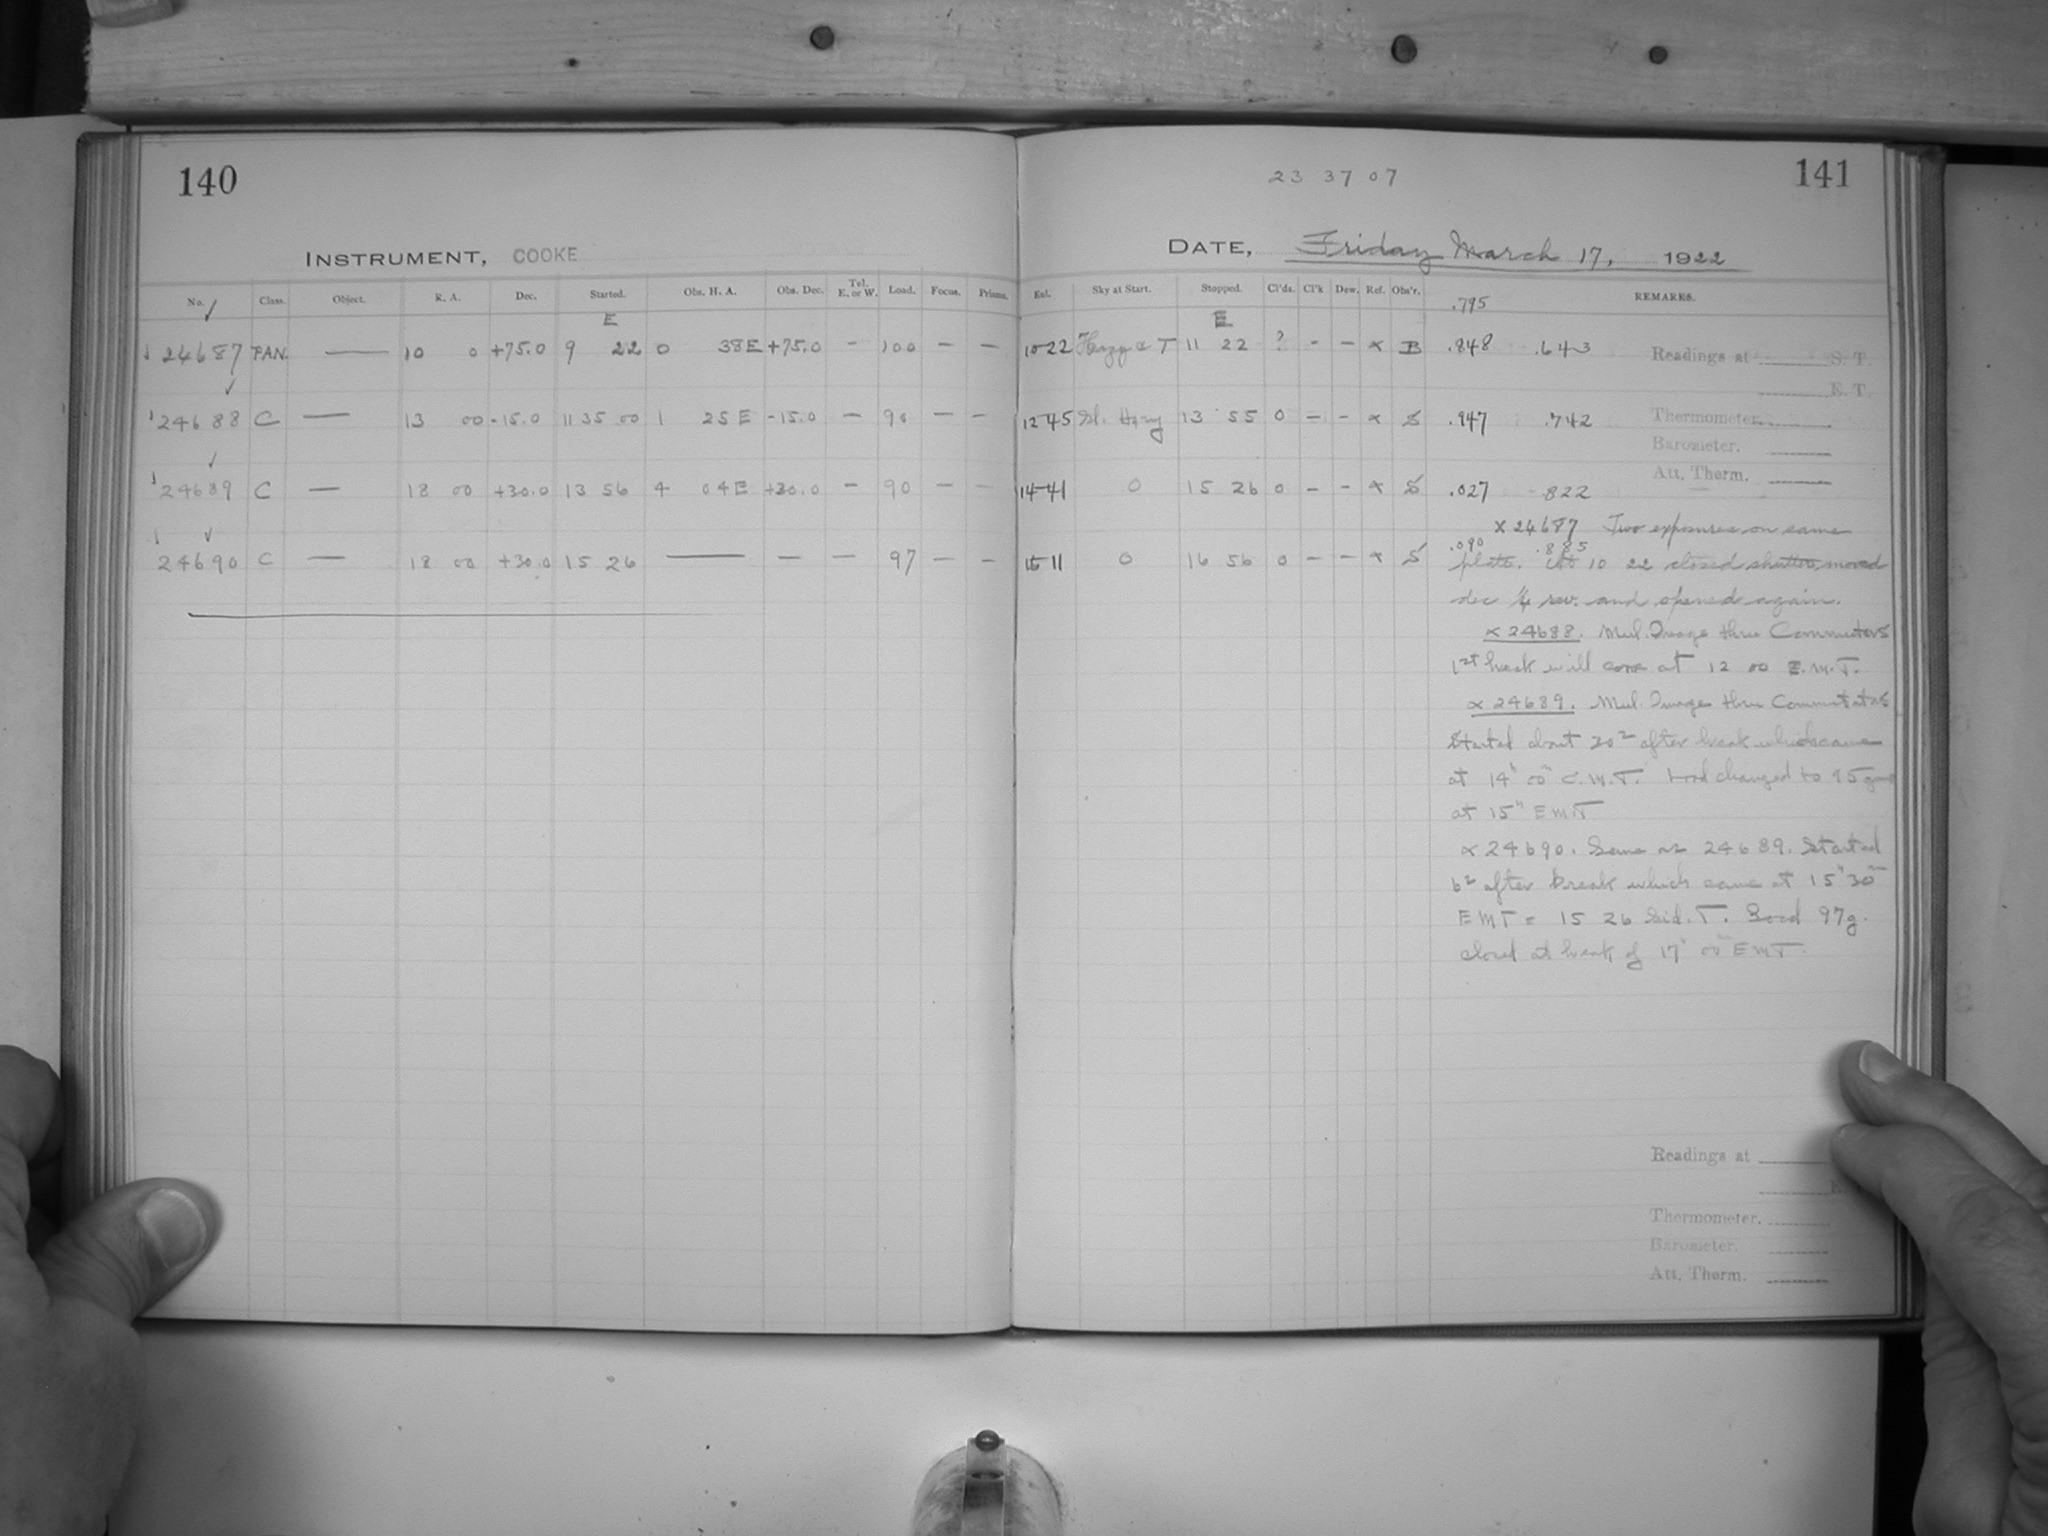 140
INSTRUMENT, COOKE
No. Class. Object. R. A. Dec. Started. Obs. H. A. Obs. Dec. Tel. E. or W. Load. Focus. Prisms.
E
24687 PAN. — 10 0 +75.0 9 22 0 38E +75.0 — 100 — —
24688 C — 13 00 -15.0 11 35 00 1 25 E -15.0 — 90 — —
24689 C — 18 00 +30.0 13 56 4 04E +30.0 — 90 — —
24690 C — 18 00 +30.0 15 26 — — — 97 — —
23 37 07
141
DATE, Friday March 17, 1922
Exl. Sky at Start. Stopped. Cl'ds. Cl'k Dew. Ref. Obs'r. REMARKS.
.795
E
10-22 Hazy & T 11 22 ? - - x B .848 .643
Readings at S. T.
E. T.
12-45 Sl. Hazy 13 55 0 - - x S .947 .742
Thermometer.
Barometer.
Att. Therm.
14-41 0 15 26 0 - - x S .027 .822
x 24687 Two exposures on same
.090 .885
15 11 0 16 56 0 - - x S
plate. At 10 22 closed shutter, moved
dec ¼ rev. and opened again.
x 24688. Mul. Image thru Commutators
1st break will come at 12 00 E.M.T.
x 24689. Mul. Image thru Commutators
Started about 20s after break which came
at 14h 00m E.M.T. Load changed to 95 gms
at 15h EMT
x 24690. Same as 24689. Started
6s after break which came at 15h 30m
EMT = 15 26 Sid. T. Load 97g.
closed at break of 17h 00m EMT.
Readings at
Thermometer.
Barometer.
Att. Therm.